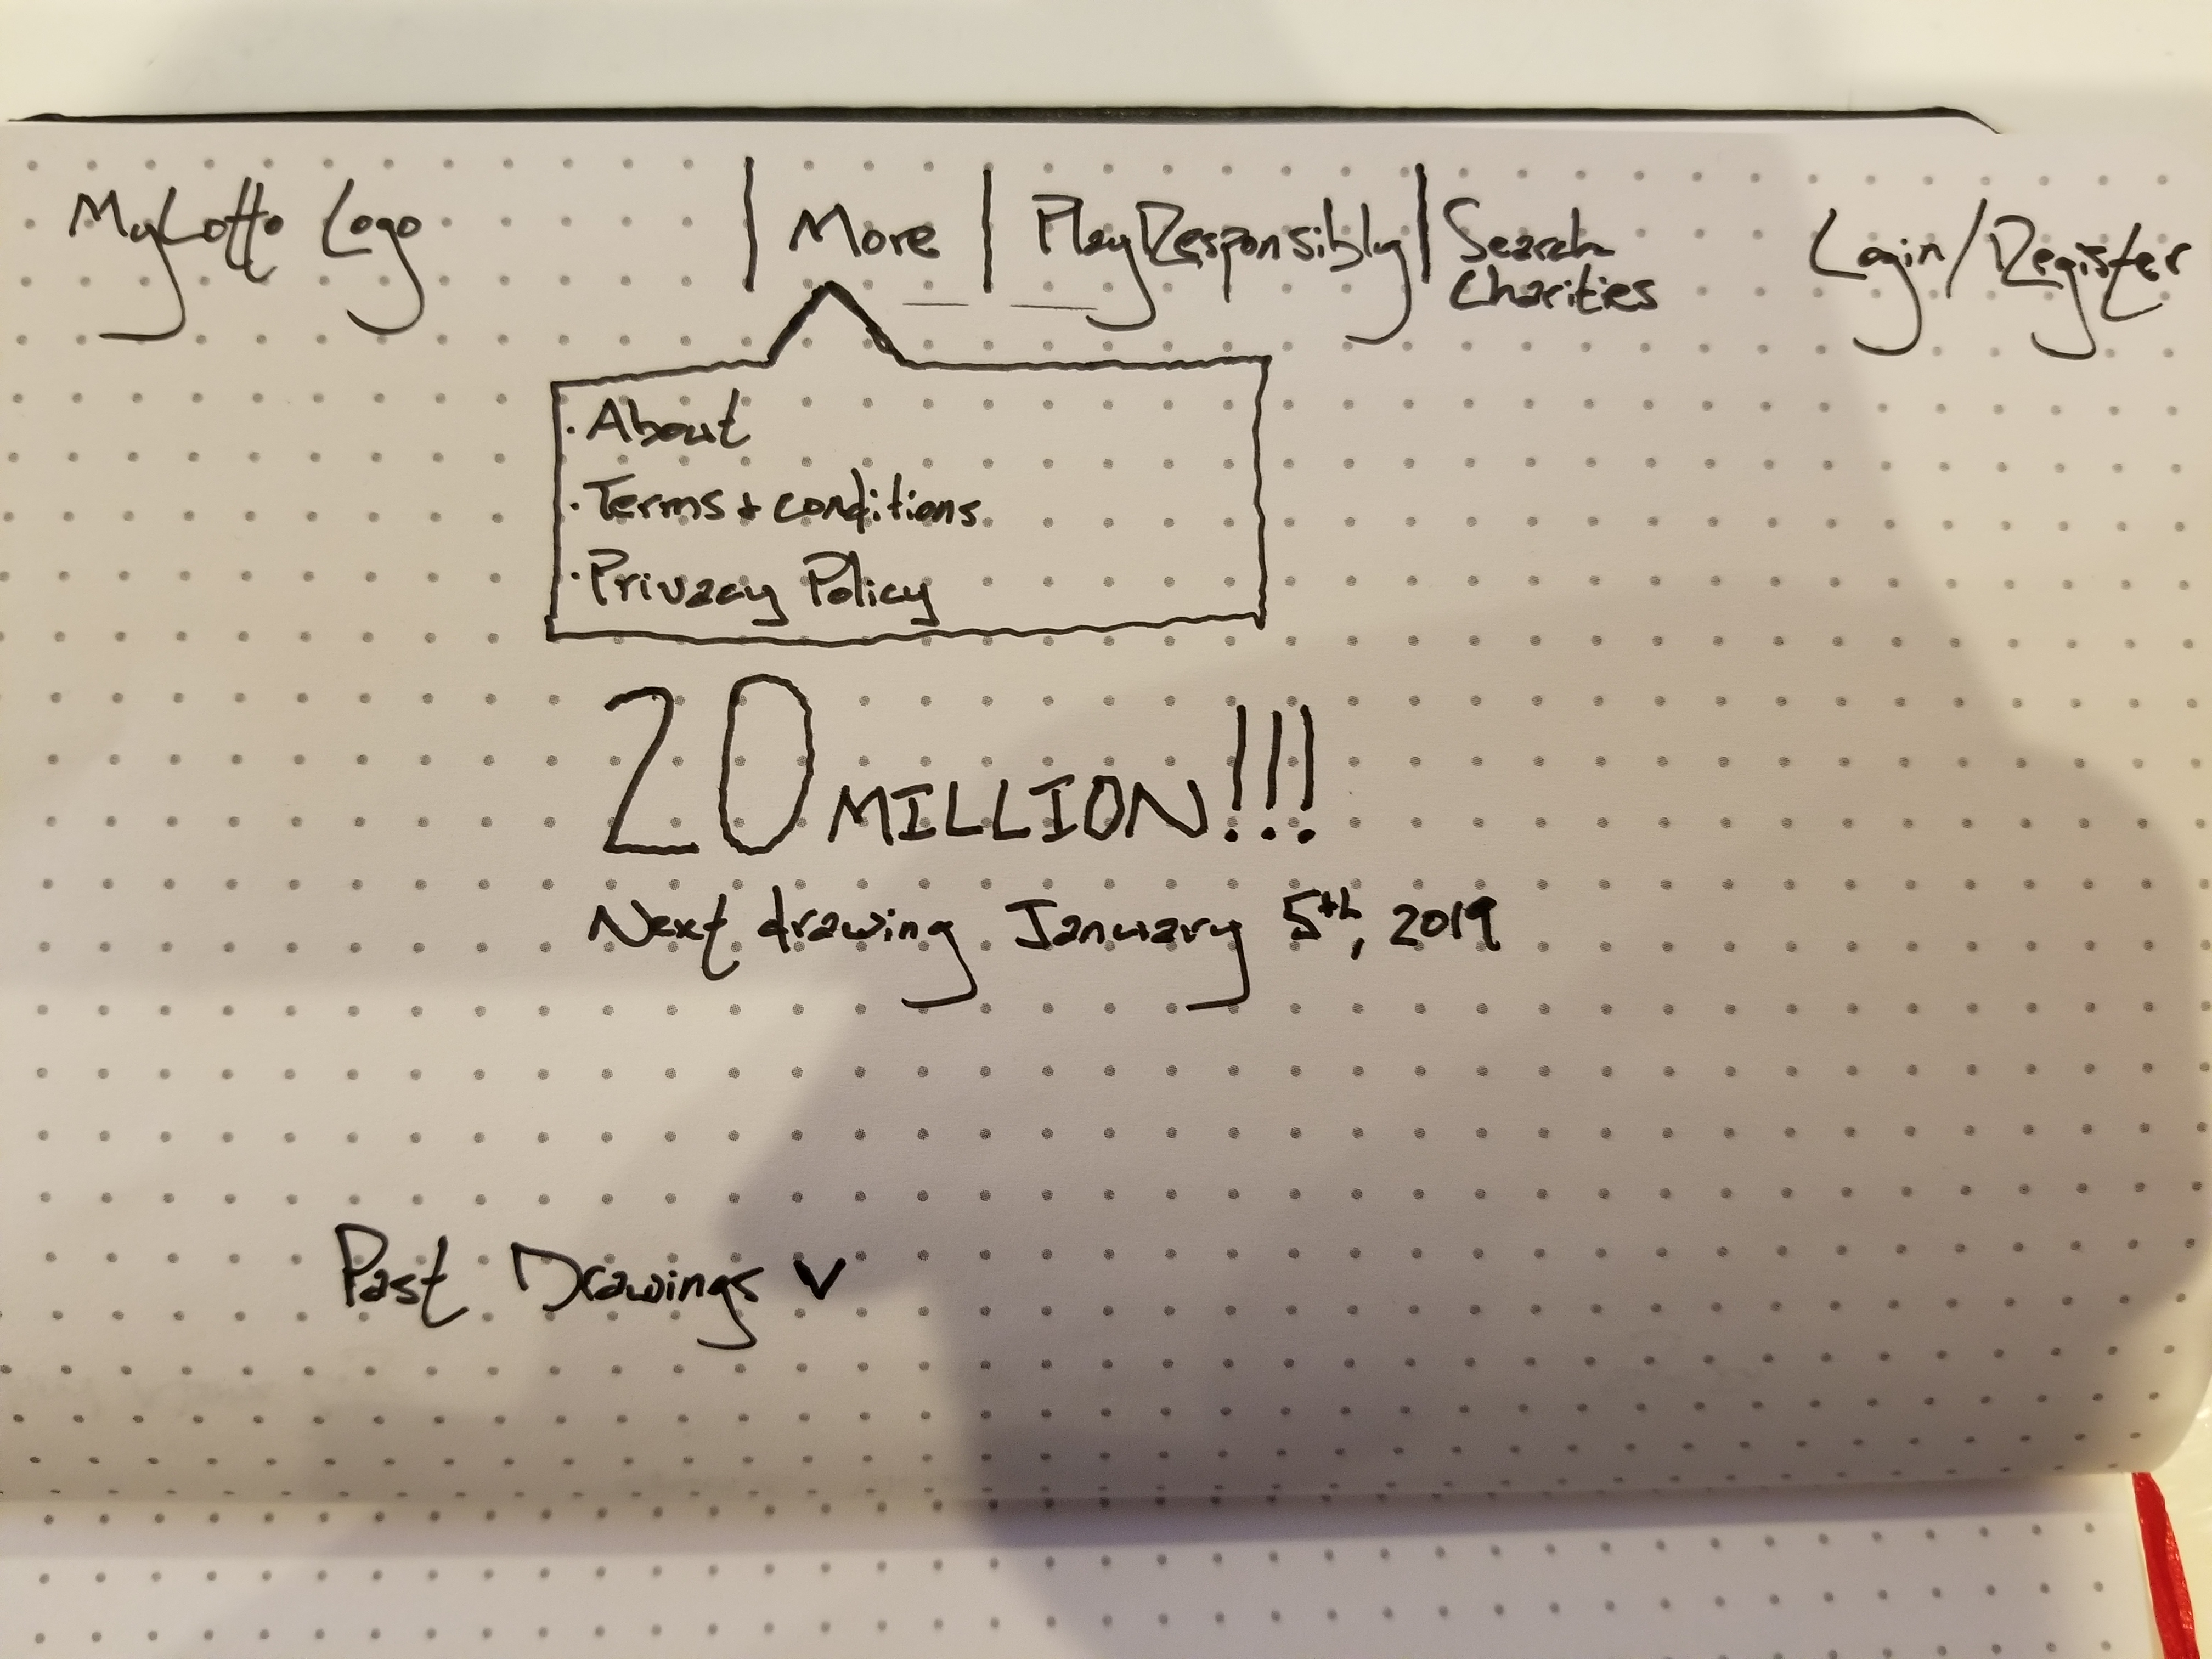 MyLotto Logo | More | Play Responsibly | Search Charities Login/Register
· About
· Terms + conditions
· Privacy Policy
20 MILLION!!!
Next drawing January 5th, 2019
Past Drawings v